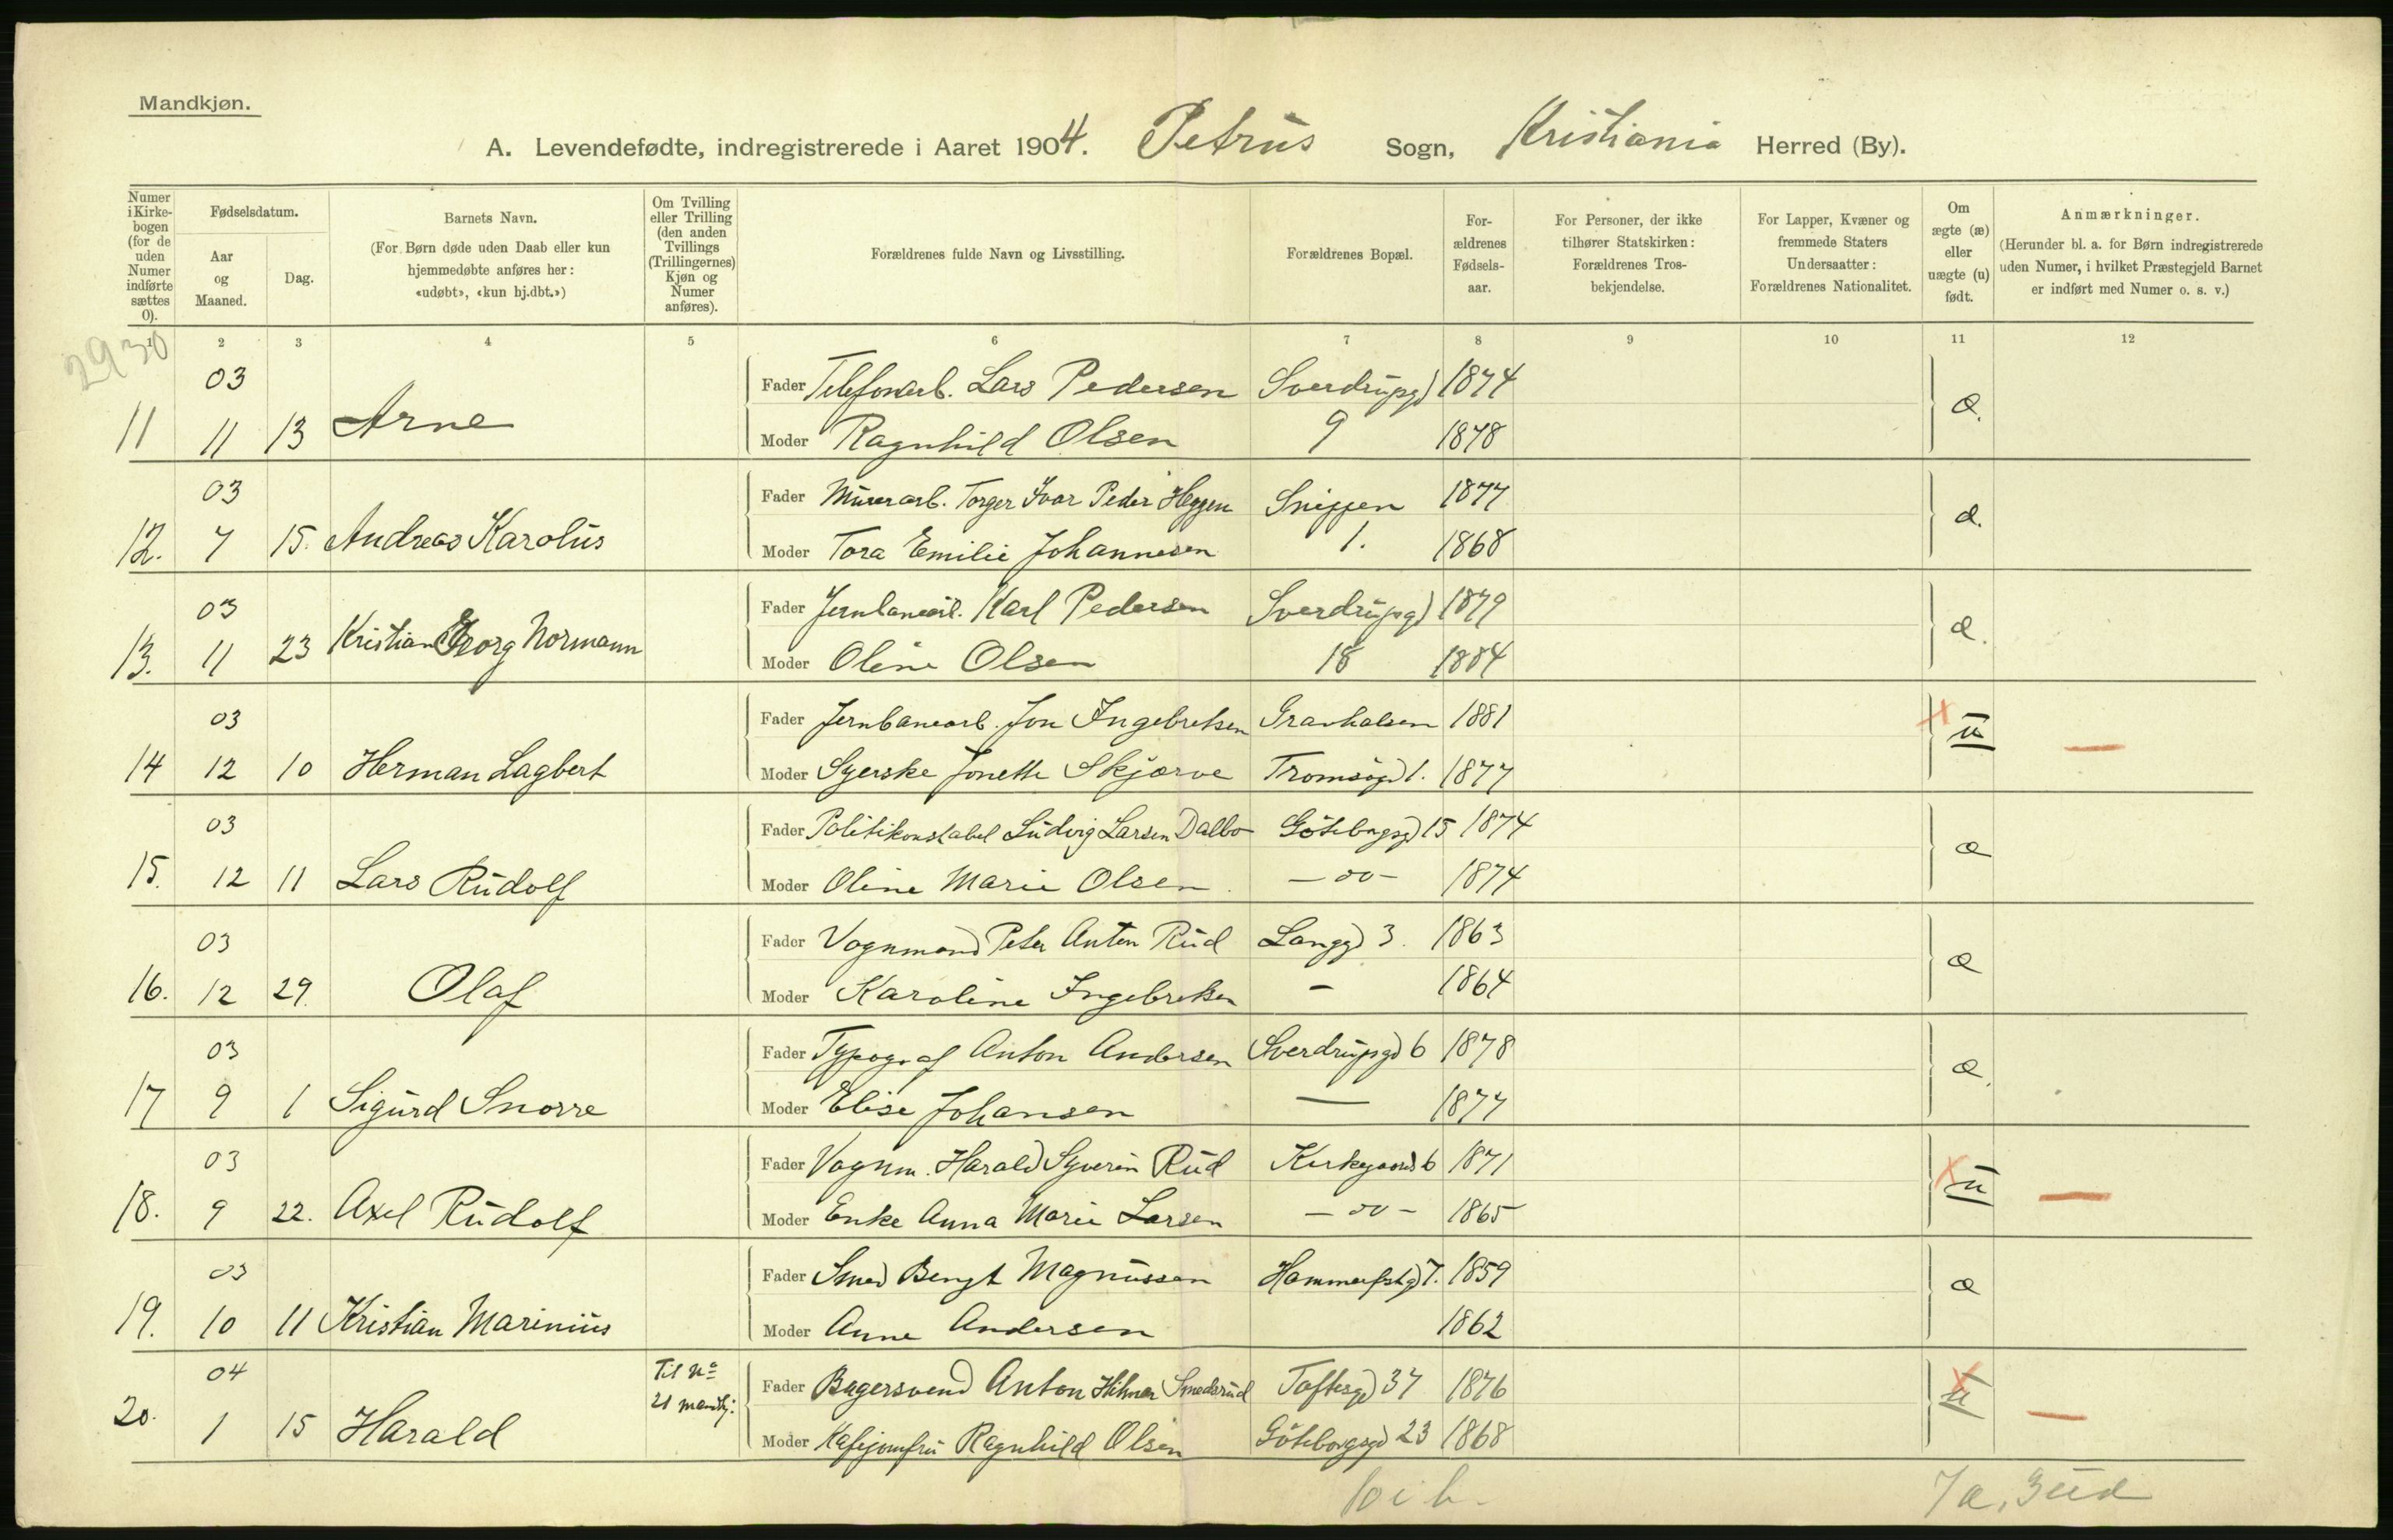 Mandkjøn.
A. Levendefødte, indregistrerede i Aaret 1904. Petrus Sogn, Kristiania Herred (By).
Numer i Kirkebogen (for de uden Numer indførte sættes 0).
Fødselsdatum.
Aar og Maaned.
Dag.
Barnets Navn.
(For Børn døde uden Daab eller kun hjemmedøbte anføres her: «udøbt», «kun hj.dbt.»)
Om Tvilling eller Trilling (den anden Tvillings (Trillingernes) Kjøn og Numer anføres).
Forældrenes fulde Navn og Livsstilling.
Forældrenes Bopæl.
Forældrenes Fødselsaar.
For Personer, der ikke tilhører Statskirken: Forældrenes Trosbekjendelse.
For Lapper, Kvæner og fremmede Staters Undersaatter: Forældrenes Nationalitet.
Om ægte (æ) eller uægte (u) født.
Anmærkninger.
(Herunder bl. a. for Børn indregistrerede uden Numer, i hvilket Præstegjeld Barnet er indført med Numer o. s. v.)
1 2 3 4 5 6 7 8 9 10 11 12
2930
03 Fader Telefonarb. Lars Pedersen Sverdrupgd 1874
11 11 13 Arne Moder Ragnhild Olsen 9 1878 æ.
03 Fader Murerarb. Torger Ivar Peder Heggen Snippen 1877
12. 7 15. Andreas Karolus Moder Tora Emilie Johannesen 1. 1868 æ.
03 Fader Jernbanearb. Karl Pedersen Sverdrupgd 1879
13. 11 23 Kristian Georg Normann Moder Oline Olsen 18 1884 æ.
03 Fader Jernbanearb. Jon Ingebretsen Gravhalsen 1881
14 12 10 Herman Lagbert Moder Syerske Jonette Skjærve Tromsøgd 1. 1877 x u —
03 Fader Politikonstabel Ludvig Larsen Dalbo Göteborgsgd 15 1874
15. 12 11 Lars Rudolf Moder Oline Marie Olsen. — oo — 1874 æ
03 Fader Vognmand Peter Anton Rud Langgd 3. 1863
16. 12 29. Olaf Moder Karoline Ingebretsen — 1864 æ
03 Fader Typograf Anton Andersen Sverdrupgd 6 1878
17 9 1 Sigurd Snorre Moder Elise Johansen — 1877 æ.
03 Fader Vognm. Harald Syverin Rud Kirkegaard 6 1871
18. 9 22. Axel Rudolf Moder Enke Anna Marie Larsen — oo — 1865 x u —
03 Fader Smed Bengt Magnussen Hammerfstgd 7. 1859
19. 10 11 Kristian Marinius Moder Anne Andersen 1862 æ
04 Til No 21 mandkj: Fader Bagersvend Anton Hilmar Smedsrud Toftesgd 37 1876
20. 1 15 Harald Moder Kafejomfru Ragnhild Olsen Göteborgsgd 23 1868 x u —
10 i b. 7 æ, 3 uæ